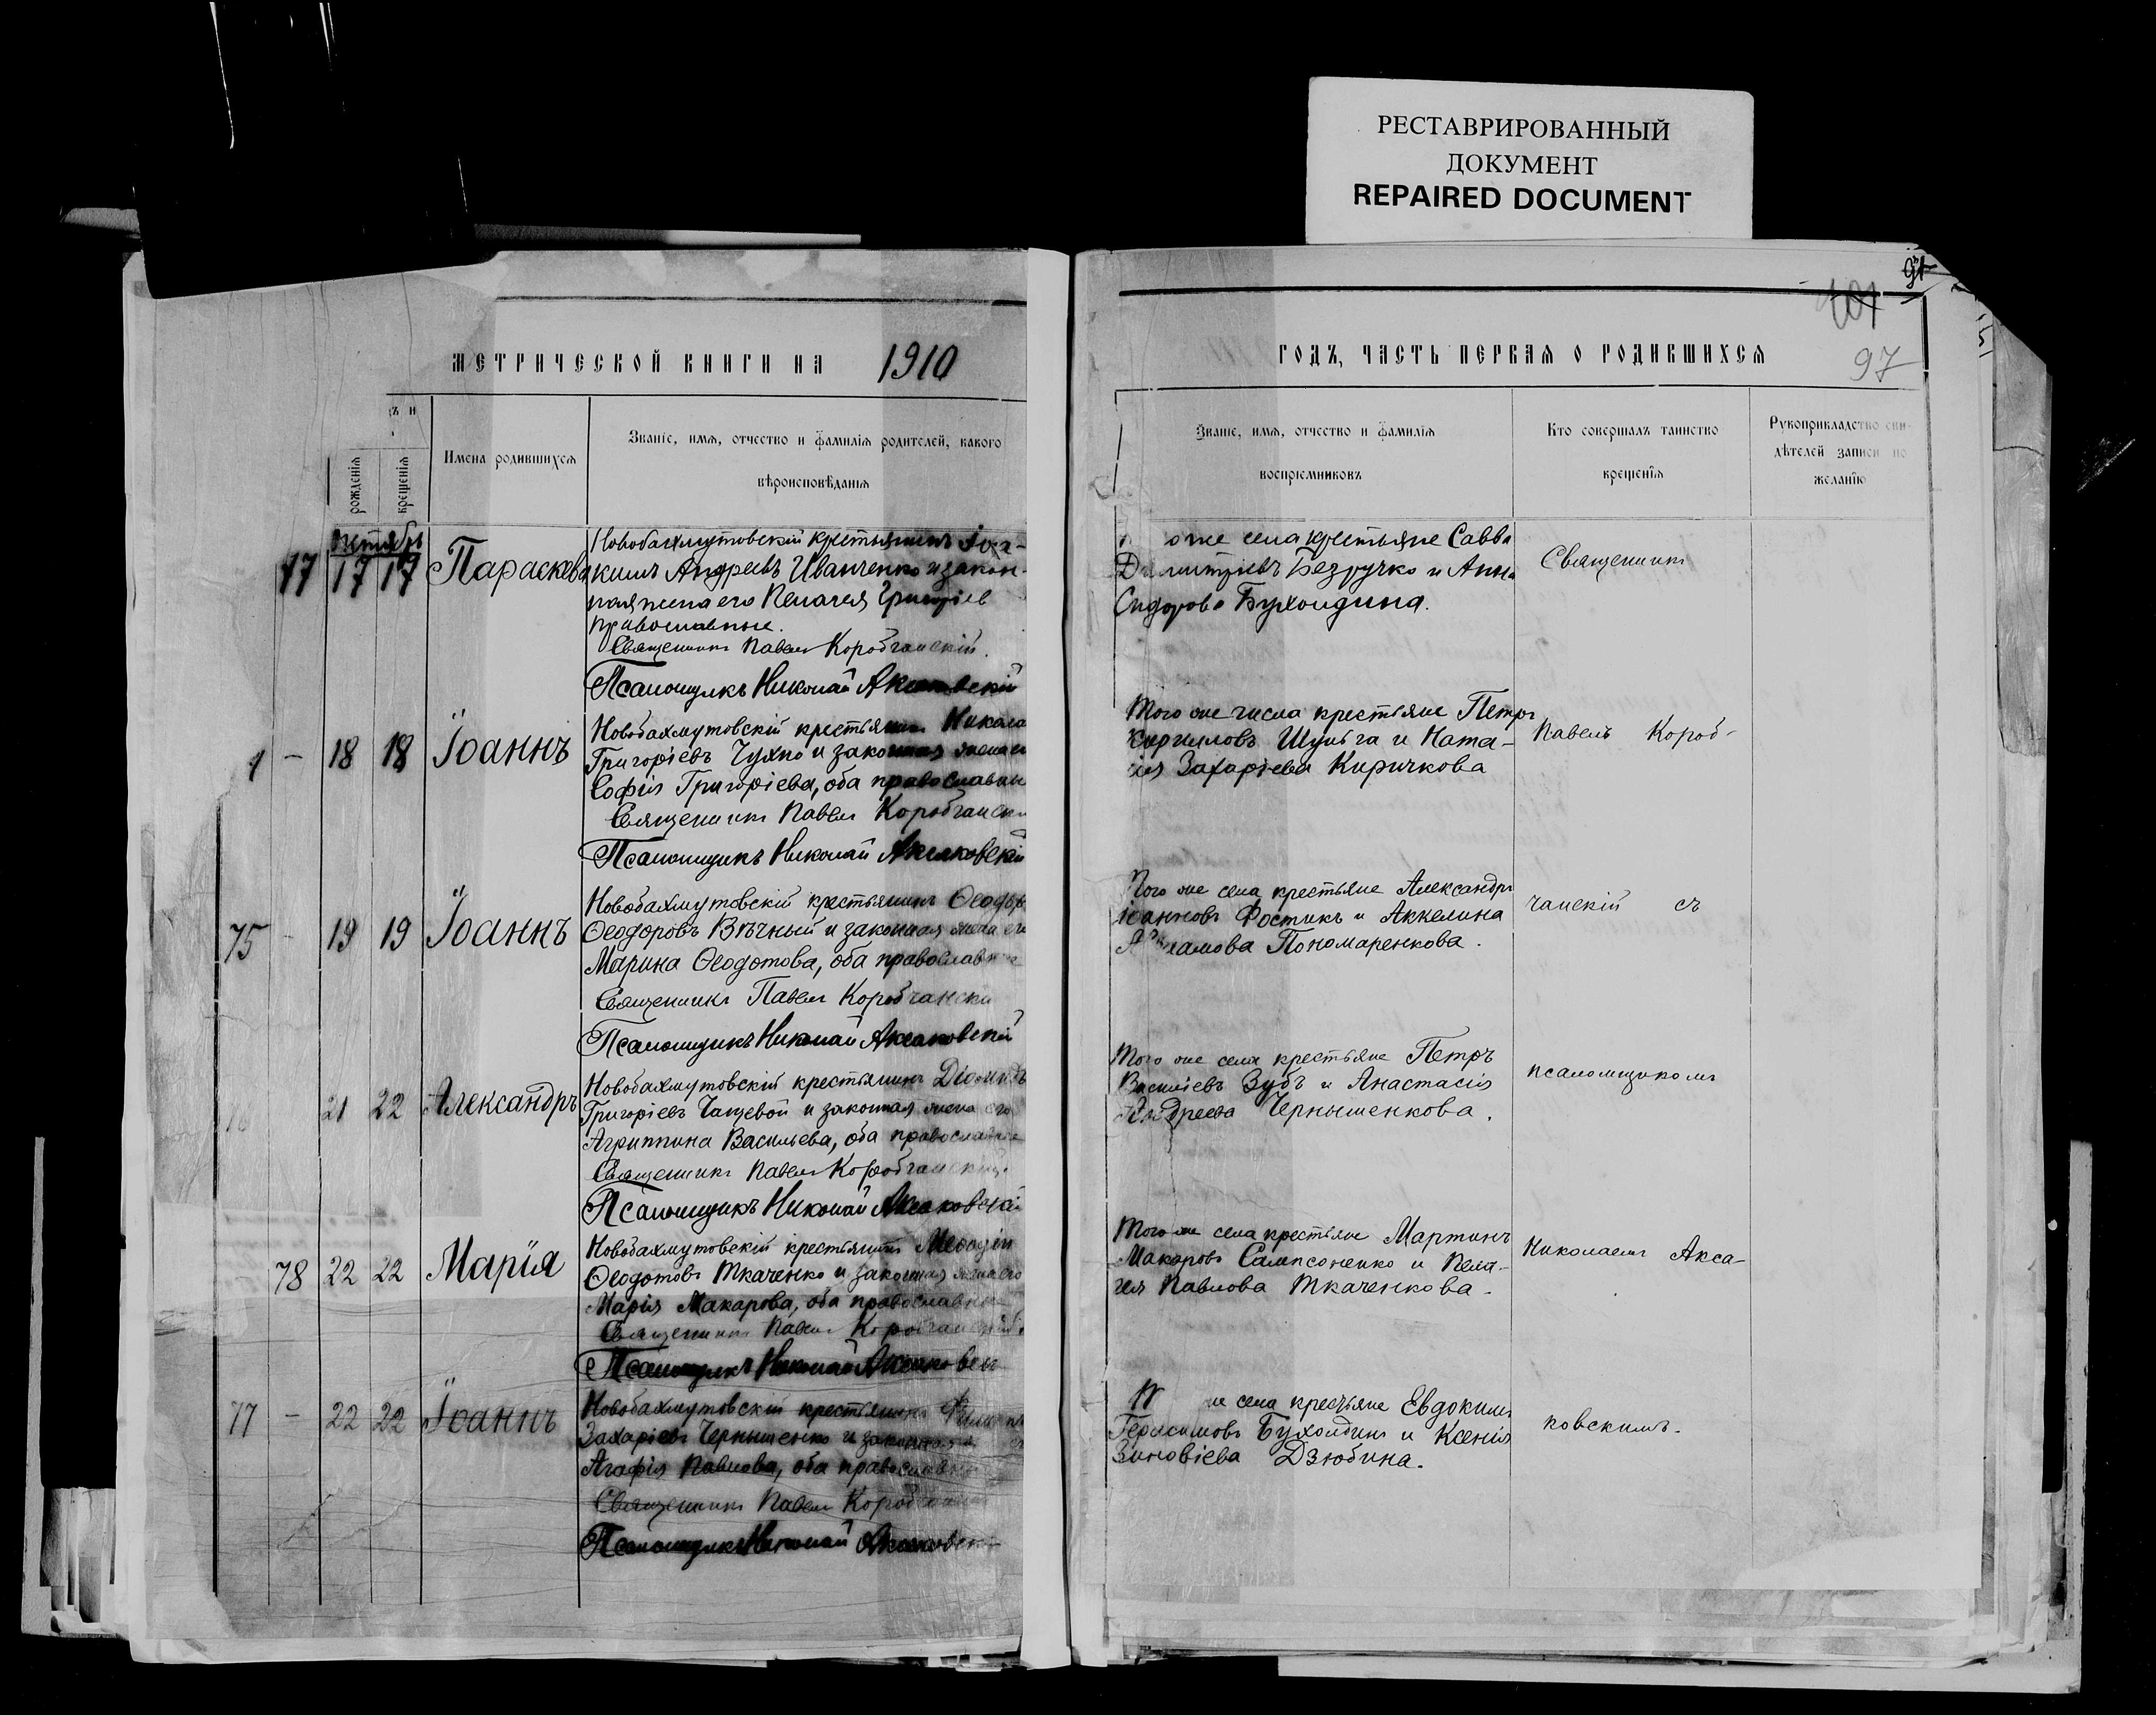 РЕСТАВРИРОВАННЫЙ
ДОКУМЕНТ
REPAIRED DOCUMENT
МЕТРИЧЕСКОЙ КНИГИ НА 1910
рожденія
крещенія
Имена родившихся
Званіе, имя, отчество и фамилія родителей, какого
вѣроисповѣданія
октябрь
77 17 17 Параскева
Новобахмутовскій крестьянинъ Іоа-
кимъ Андреевъ Иванченко и закон-
ная жена его Пелагея Григоріев
православные.
Священникъ Павелъ Коробчанскій.
Псаломщикъ Николай Аксаковскій
– 18 18 Іоаннъ
Новобахмутовскій крестьянинъ Никола
Григоріевъ Чухно и законная жена ег
Софія Григоріева, оба православны
Священникъ Павелъ Коробчански
Псаломщикъ Николай Аксаковскій
75 – 19 19 Іоаннъ
Новобахмутовскій крестьянинъ Ѳеодоръ
Ѳеодоровъ Вѣчный и законная жена его
Марина Ѳеодотова, оба православные
Священникъ Павелъ Коробчански
Псаломщикъ Николай Аксаковскій
76 21 22 Александръ
Новобахмутовскій крестьянинъ Діомидъ
Григоріевъ Чащевой и законная жена его
Агриппина Васильева, оба православные
Священникъ Павелъ Коробчанскій.
Псаломщикъ Николай Аксаковскій
78 22 22 Марія
Новобахмутовскій крестьянинъ Меѳодій
Ѳеодотовъ Ткаченко и законная жена его
Марія Макарова, оба православные
Священникъ Павелъ Коробчанскій.
Псаломщикъ Николай Аксаковск
77 – 22 22 Іоаннъ
Новобахмутовскій крестьянинъ
Захаріевъ Чернышенко и законная
Агафія Павлова, оба православны
Священникъ Павелъ Коробчански
Псаломщикъ Николай Аксаковск
101
97
ГОДЪ, ЧАСТЬ ПЕРВАЯ О РОДИВШИХСЯ
Званіе, имя, отчество и фамилія
воспріемниковъ
Кто совершалъ таинство
крещенія
Рукоприкладство сви-
дѣтелей записи по
желанію
оже села крестьяне Савва
Димитріевъ Безручко и Анна
Сидорова Бухолдина.
Священникъ
Того же числа крестьяне Петръ
Кирилловъ Шульга и Ната-
лія Захаріева Киричкова
Павелъ Короб-
Того же села крестьяне Александръ
Іоанновъ Фостикъ и Аккелина
Пономаренкова.
чанскій съ
Того же села крестьяне Петръ
Василіевъ Зубъ и Анастасія
Андреева Чернышенкова.
псаломщикомъ
Того же села крестьяне Мартинъ
Макаровъ Сампсоненко и Пела-
гея Павлова Ткаченкова.
Николаемъ Акса-
же села крестьяне Евдокимъ
Герасимовъ Бухолдинъ и Ксенія
Зиновіева Дзюбина.
ковскимъ.